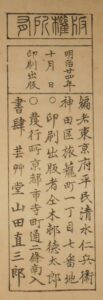 版權所有
明治廿四年
十月 日
印刷出版
編者東京府平民清水仁兵衛
神田區旅籠町一丁目七番地
○印刷出版者仝木邨德太郎
○發行所京都市寺町通二條南入
書肆 芸艸堂 山田直三郎